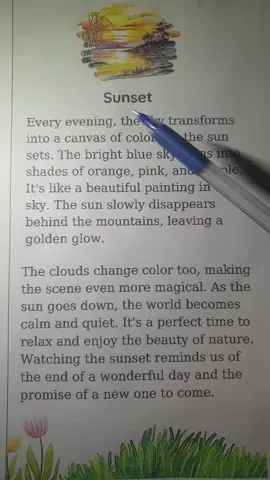 Sunset
Every evening, the transforms
into a canvas of color the sun
sets. The bright blue sky into
shades of orange, pink, and
It's like a beautiful painting in
sky. The sun slowly disappears
behind the mountains, leaving a
golden glow.
The clouds change color too, making
the scene even more magical. As the
sun goes down, the world becomes
calm and quiet. It's a perfect time to
relax and enjoy the beauty of nature.
Watching the sunset reminds us of
the end of a wonderful day and the
promise of a new one to come.